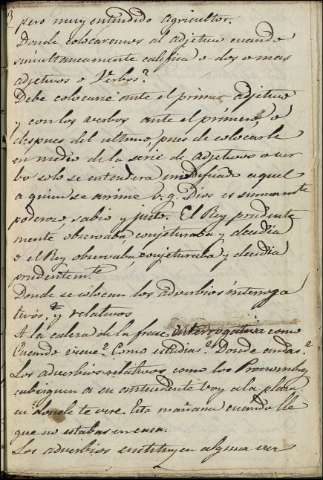 pero muy entendido agricultor.
Donde colocaremos al adjetivo cuando
simultaneamente califica a dos o mas
adjetivos o Verbos?
Debe colocarse ante el primer adjetivo
y con los verbos ante el primero, o
despues del ultimo, pues de colocarle
en medio de la serie de adjetivos o ver
bo solo se entendera modificado aquel
a quien se arrime v. g. Dios es sumamente
poderoso sabio y justo. El Rey prudente
mente observaba conjeturaba y decidia
o el Rey observaba conjeturaba y decidia
prudentemte
Donde se colocan los adverbios interroga
tivos, y relativos
A la cabeza de la frase interrogativa como
Cuando viene? Como estudias? Donde andas?
Los adverbios relativos como los Pronombs
subsiguen a su antecedente voy a la plaza
en donde te vi esta mañana cuando lle
que no estabas en casa.
Los adverbios sustituyen alguna vez